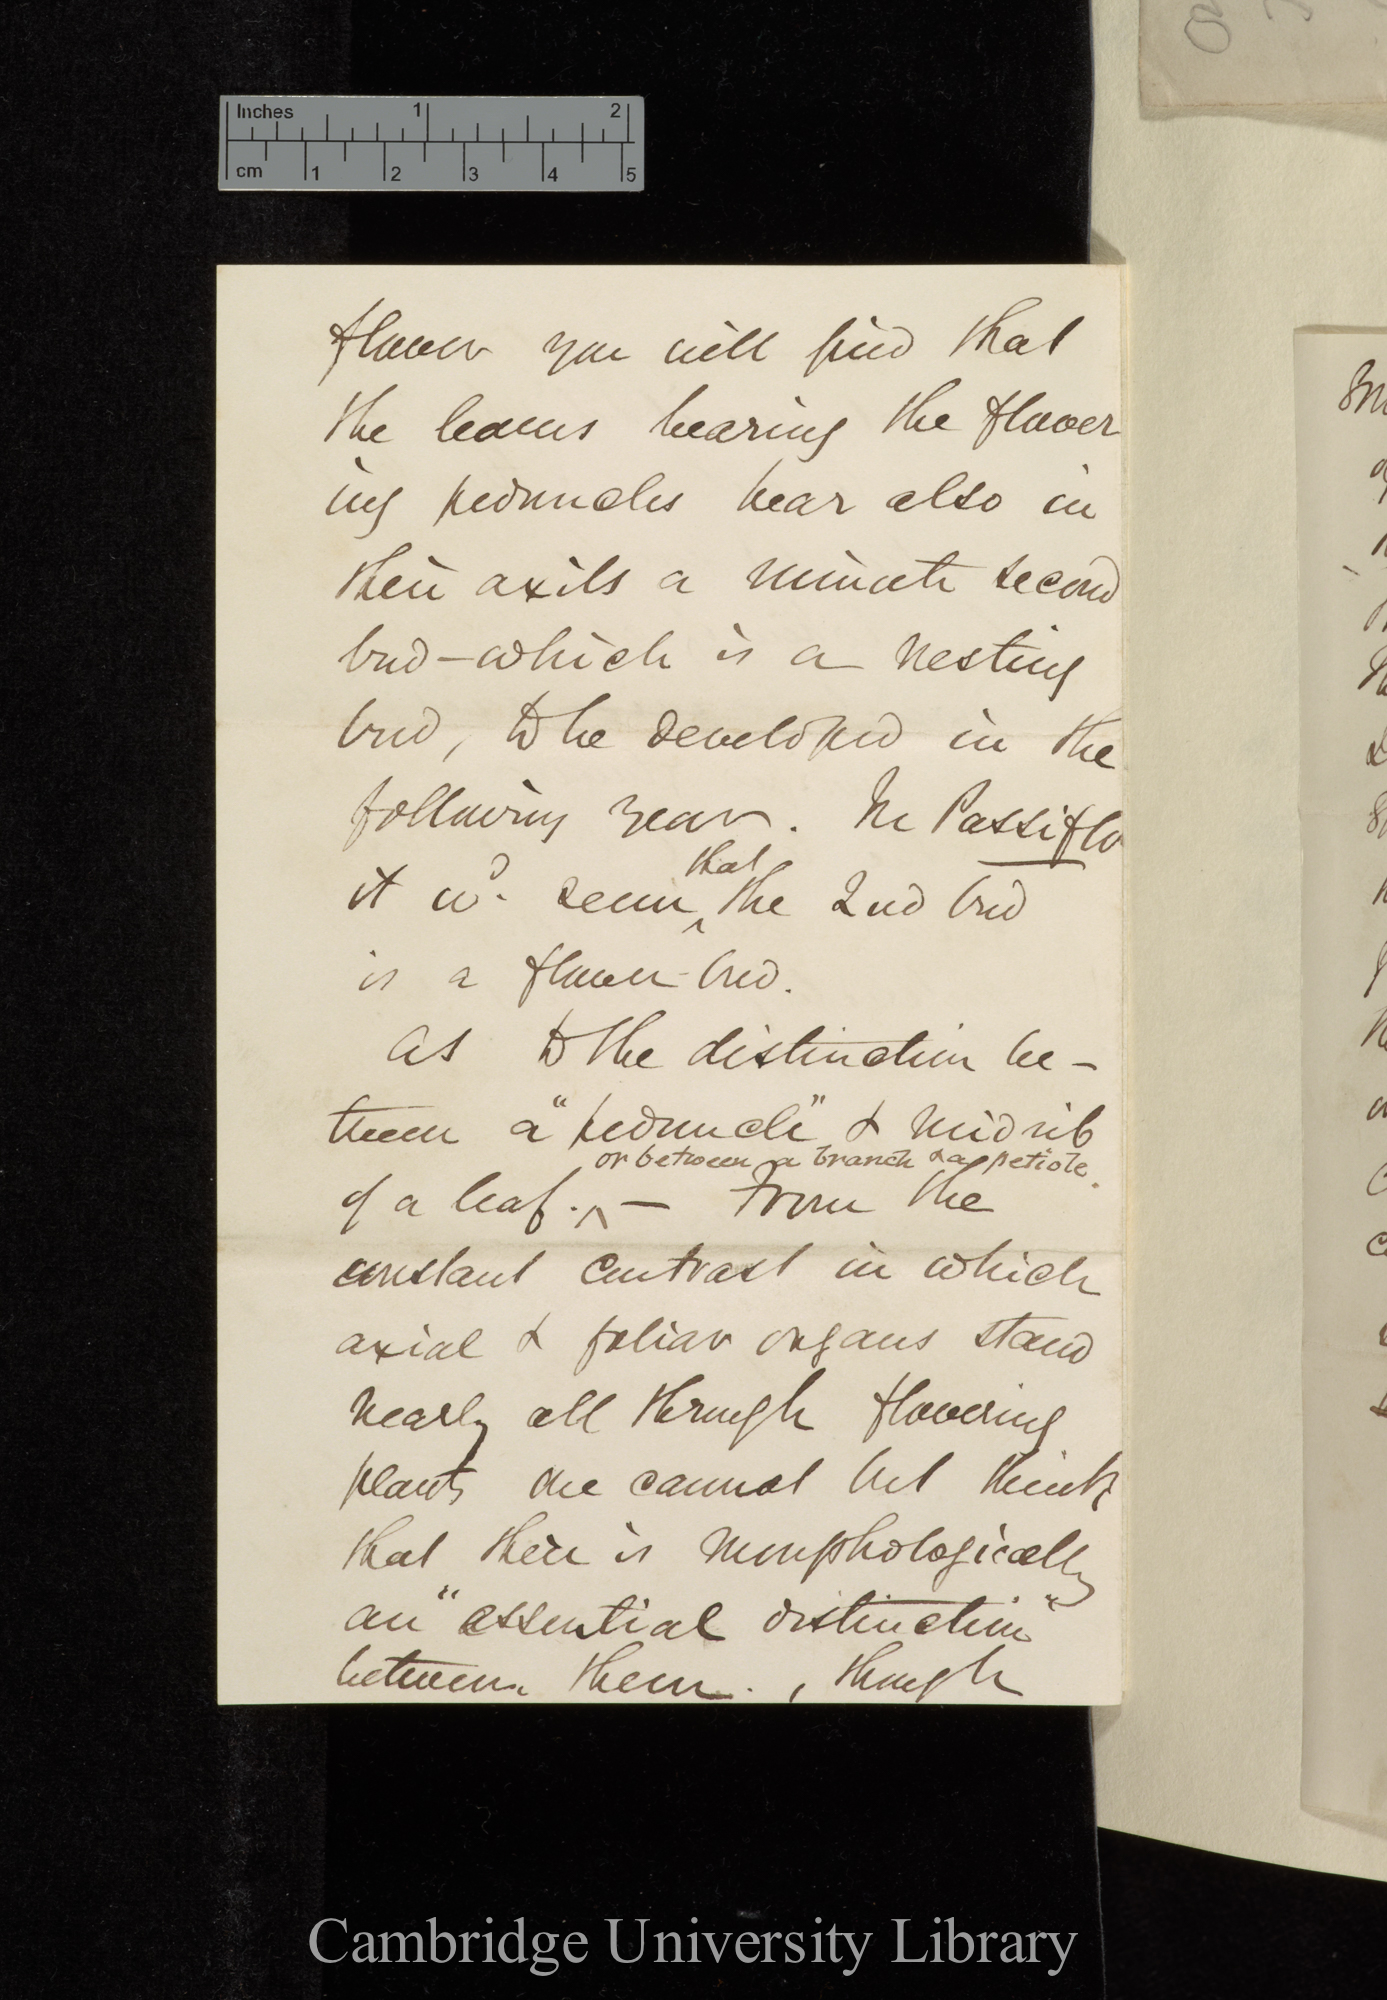 Inches 1 2
cm 1 2 3 4 5
flower you will find that
the leaves bearing the flower
ing peduncles bear also in
their axils a minute second
bud – which is a resting
bud, to be developed in the
following year. In Passiflo
it wd. seem that the 2nd bud
is a flower-bud.
As to the distinction be-
tween a "peduncle" & midrib
or between a branch & a petiole.
of a leaf. — From the
constant contrast in which
axial & foliar organs stand
nearly all through flowering
plants one cannot but think
that there is morphologically
an "essential distinction"
between them. , though
Cambridge University Library